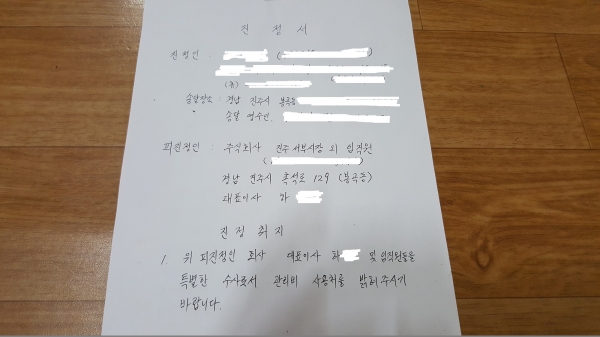 진 정 서
진정인 :
(우)
송달장소 : 경남 진주시 봉곡동
송달 영수인.
피진정인 : 주식회사 진주 서부시장 외 임직원
경남 진주시 흑석로 129 (봉곡동)
대표이사 하
진 정 취 지
1. 위 피진정인 회사 대표이사 하 및 임직원들을
특별한 수사로서 관리비 사용처를 밝혀 주시기
바랍니다.